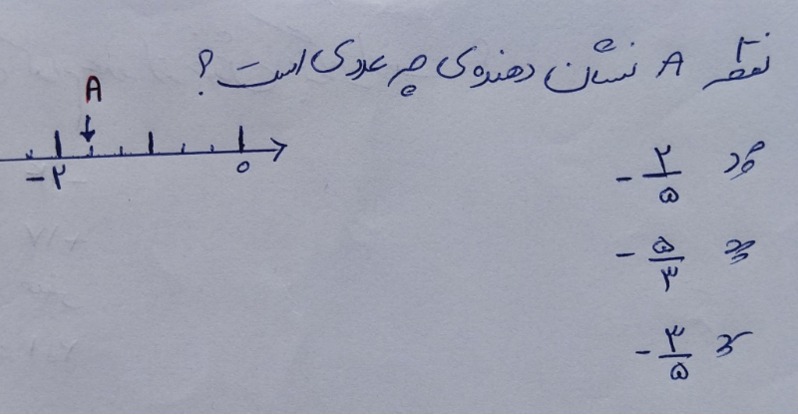 نقطه A نشان دهنده‌ی چه عددی است؟
A
-۲ ۰
-۲/۵
-۵/۳
-۳/۵